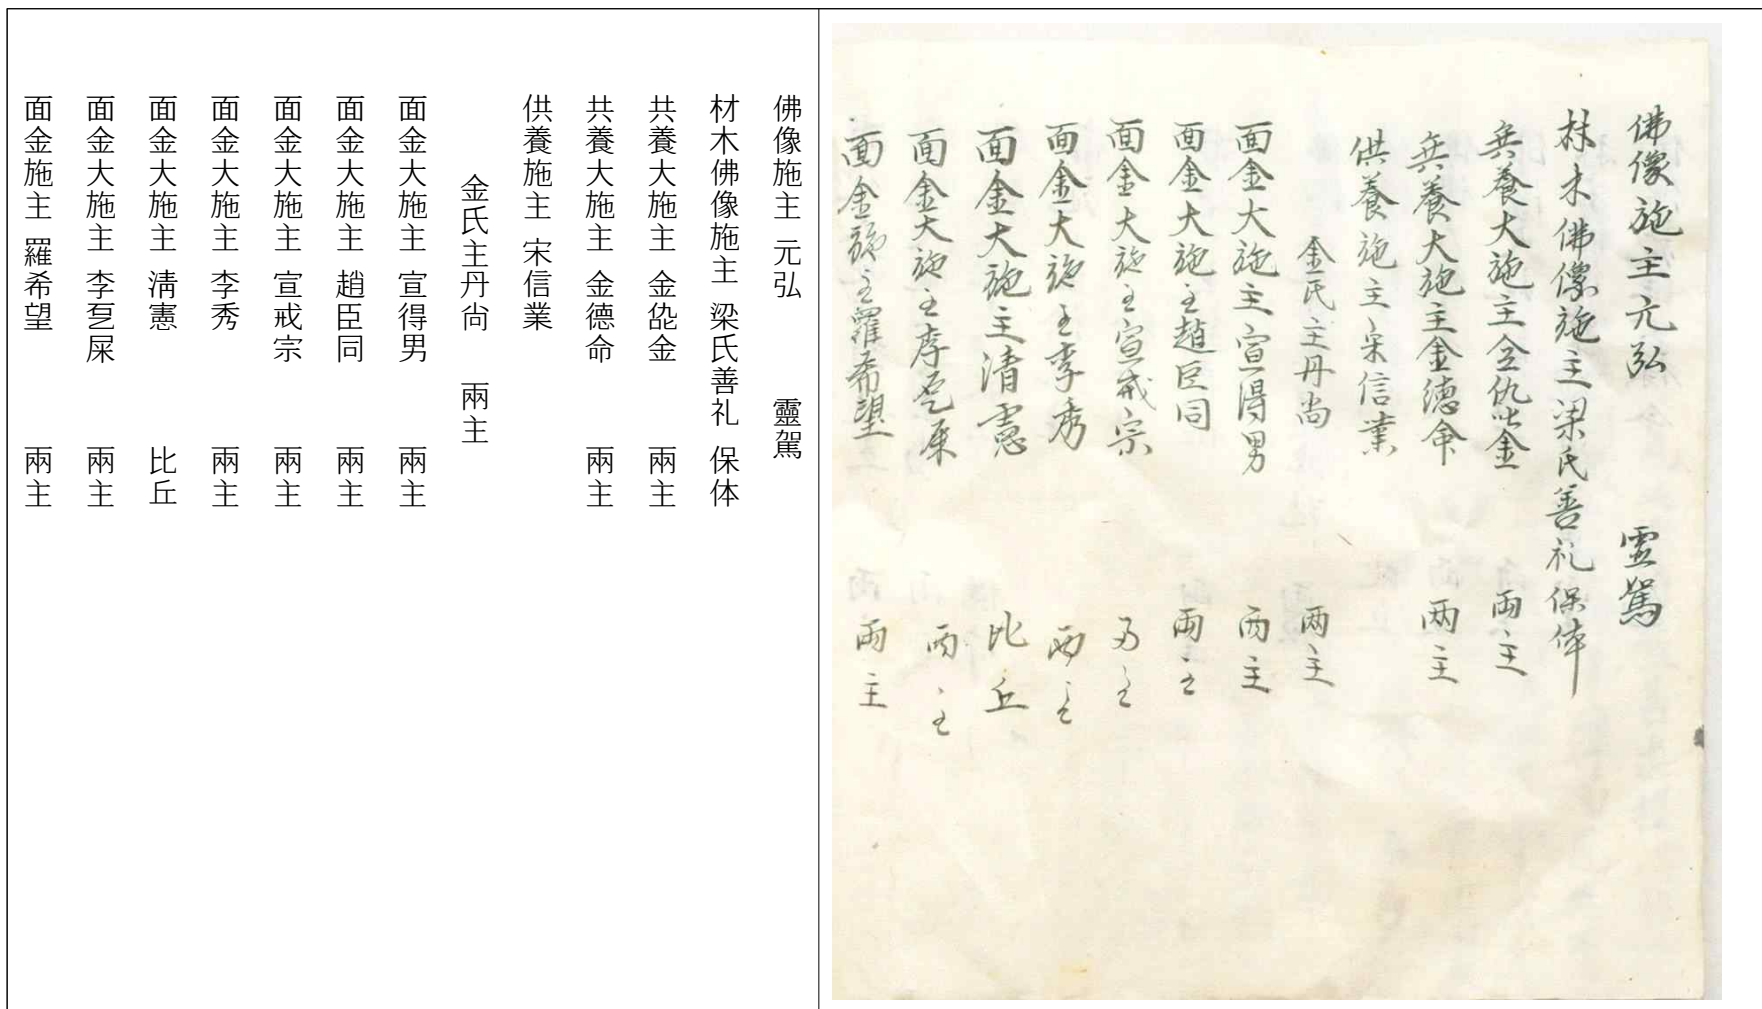 佛像施主 元弘 靈駕
材木佛像施主 梁氏善礼 保体
共養大施主 金㐇金 兩主
共養大施主 金德命 兩主
供養施主 宋信業
金氏主丹尙 兩主
面金大施主 宣得男 兩主
面金大施主 趙臣同 兩主
面金大施主 宣戒宗 兩主
面金大施主 李秀 兩主
面金大施主 淸憲 比丘
面金大施主 李乭屎 兩主
面金施主 羅希望 兩主
佛像施主元弘 靈駕
材木佛像施主梁氏善礼保体
共養大施主金仇㖋金 兩主
共養大施主金德命 兩主
供養施主宋信業
金氏主丹尚 兩主
面金大施主宣得男 兩主
面金大施主趙臣同 兩主
面金大施主宣戒宗 兩主
面金大施主李秀 兩主
面金大施主清憲 比丘
面金大施主李乭屎 兩主
面金施主羅希望 兩主